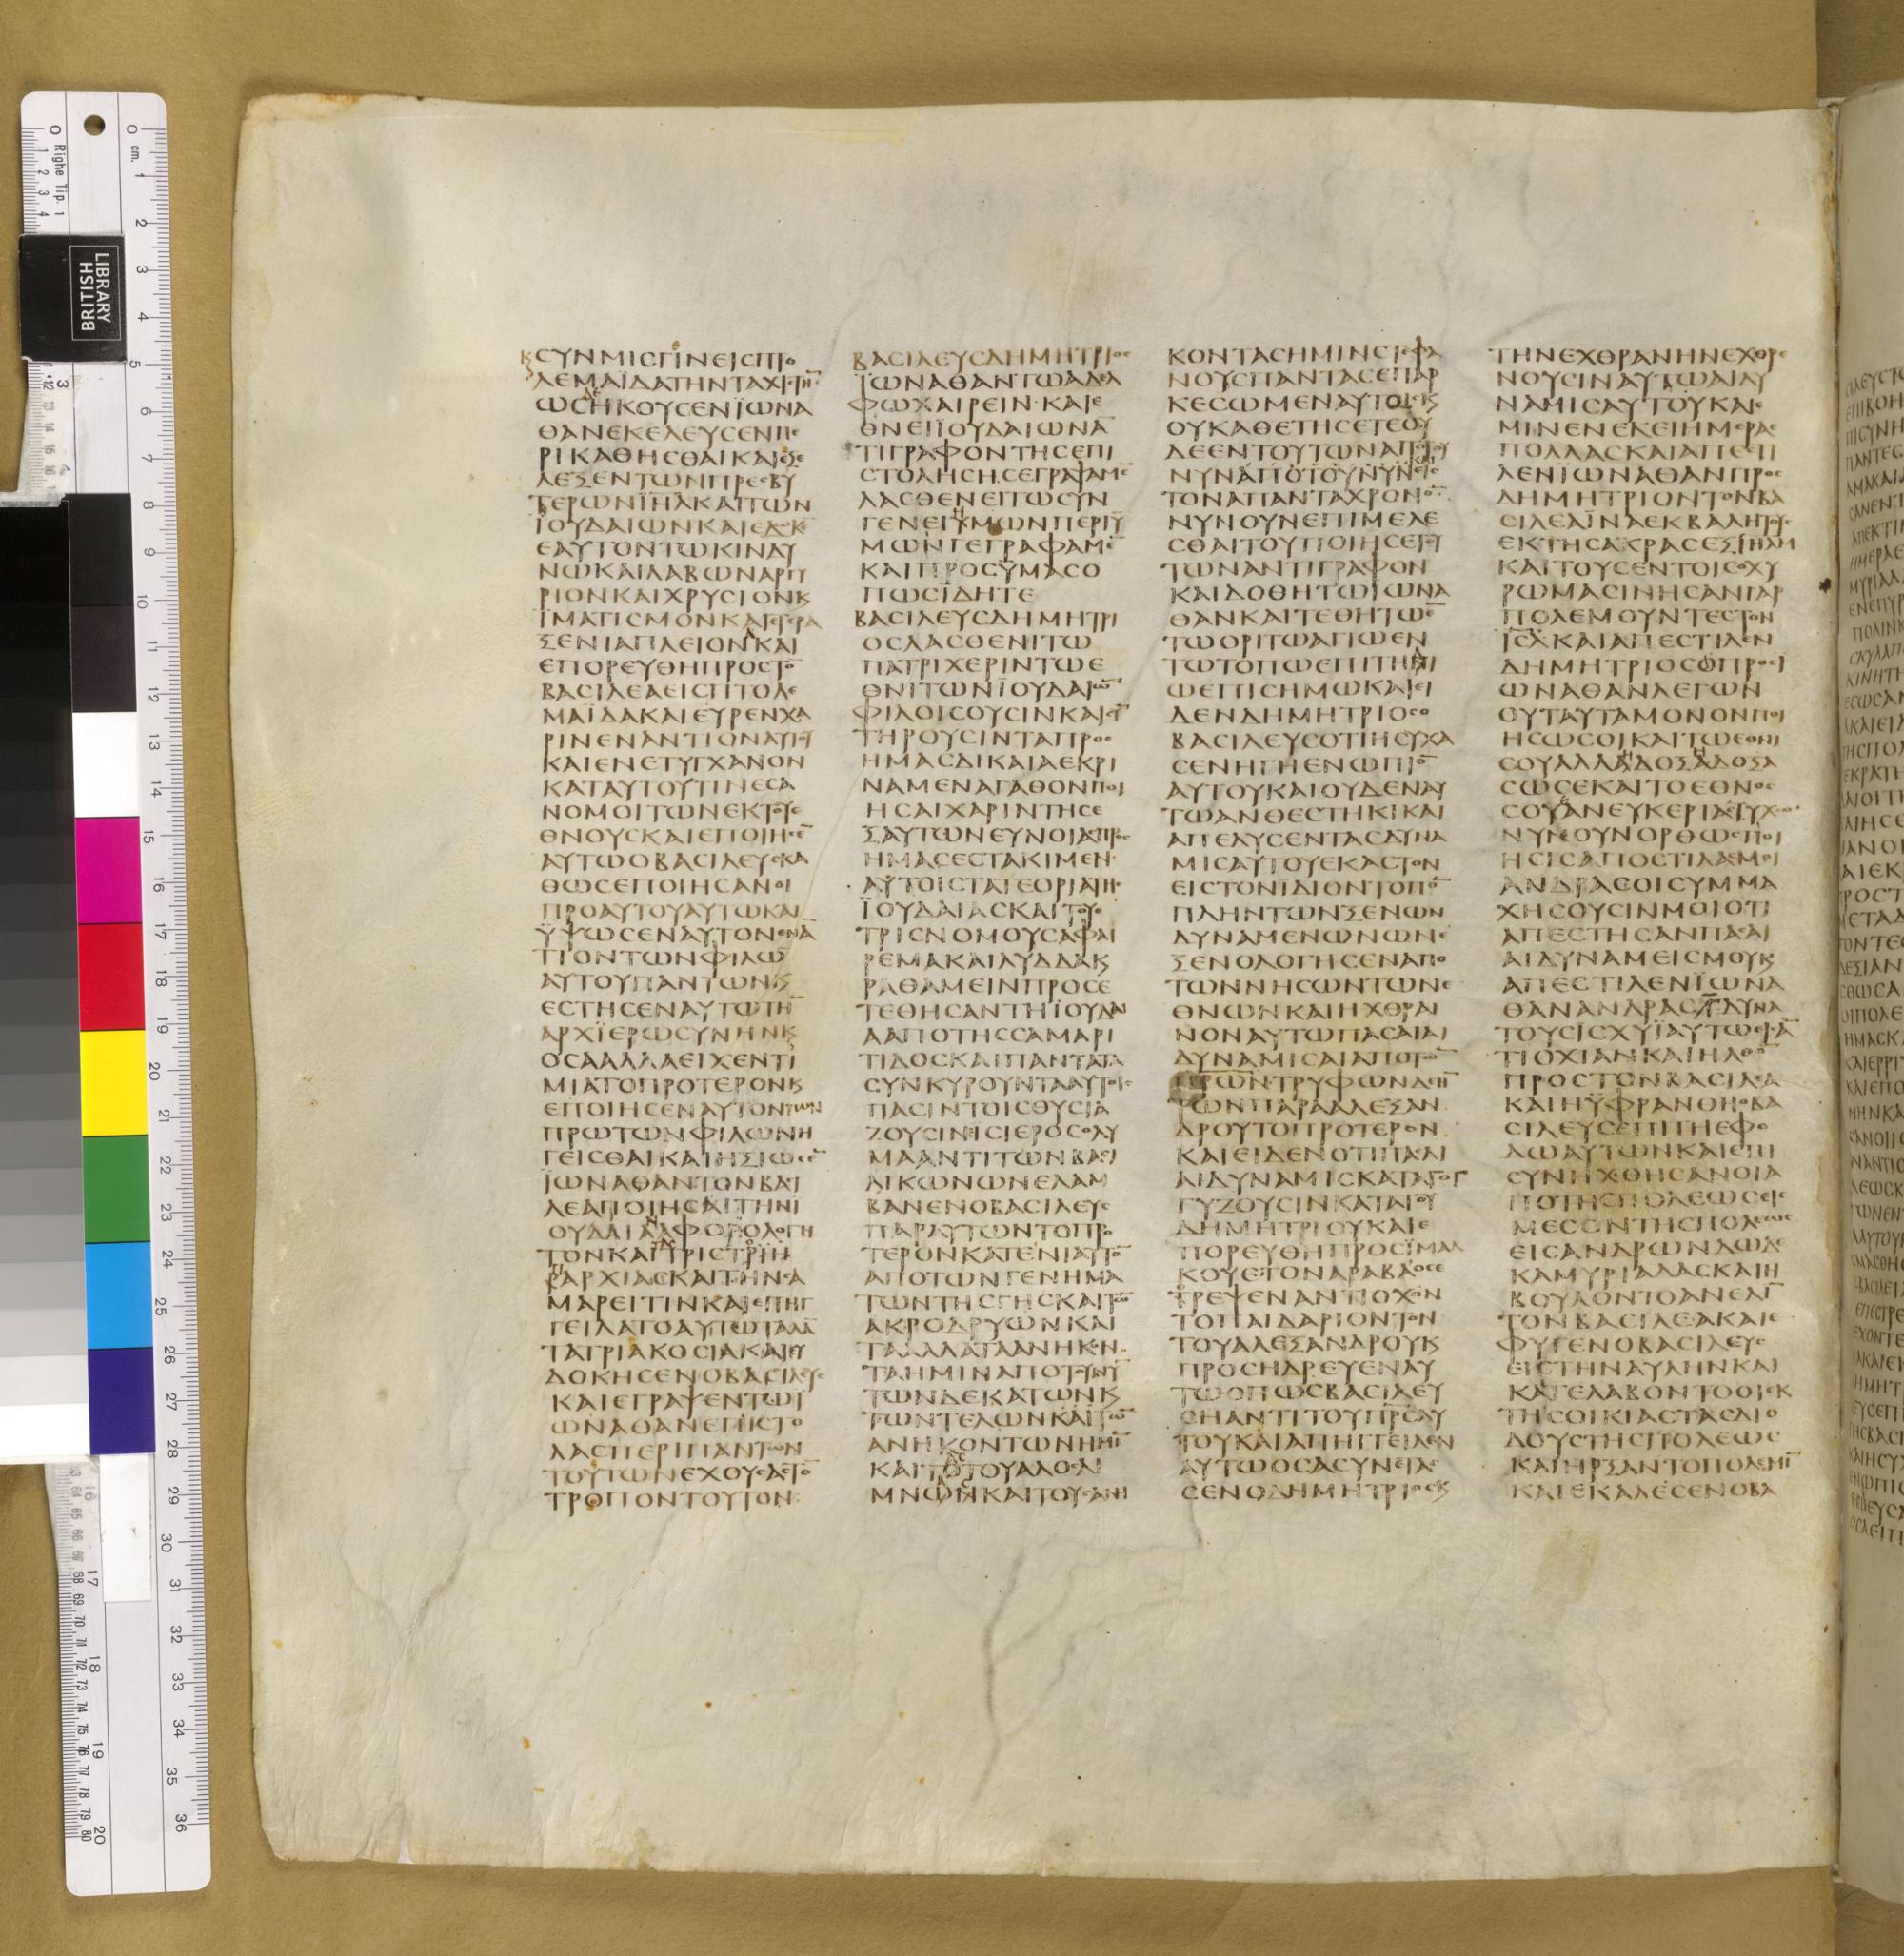 ΣΥΝΜΙΣΓΙΝΕΙΣΠΤΟ
ΛΕΜΑΪΔΑΤΗΝΤΑΧΙΣΤΗ̅
ΩΣΔΕΗΚΟΥΣΕΝΪΩΝΑ
ΘΑΝΕΚΕΛΕΥΣΕΝΠΕ
ΡΙΚΑΘΗΣΘΑΙΚΑΙΕΠΕ
ΛΕΞΕΝΤΩΝΠΡΕΣΒΥ
ΤΕΡΩΝΙΗΛΚΑΙΤΩΝ
ΪΟΥΔΑΙΩΝΚΑΙΕΔΩΚΕ̅
ΕΑΥΤΟΝΤΩΚΙΝΔΥ
ΝΩΚΑΙΛΑΒΩΝΑΡΓΥ
ΡΙΟΝΚΑΙΧΡΥΣΙΟΝΚΑΙ
ΪΜΑΤΙΣΜΟΝΚΑΙΕΤΕΡΑ
ΞΕΝΙΑΠΛΕΙΟΝΑΚΑΙ
ΕΠΟΡΕΥΘΗΠΡΟΣΤΟ̅
ΒΑΣΙΛΕΑΕΙΣΠΤΟΛΕ
ΜΑΪΔΑΚΑΙΕΥΡΕΝΧΑ
ΡΙΝΕΝΑΝΤΙΟΝΑΥΤΟΥ
ΚΑΙΕΝΕΤΥΓΧΑΝΟΝ
ΚΑΤΑΥΤΟΥΤΙΝΕΣΑ
ΝΟΜΟΙΤΩΝΕΚΤΟΥΕ
ΘΝΟΥΣΚΑΙΕΠΟΙΗΣΕ̅
ΑΥΤΩΟΒΑΣΙΛΕΥΣΚΑ
ΘΩΣΕΠΟΙΗΣΑΝΟΙ
ΠΡΟΑΥΤΟΥΑΥΤΩΚΑΙ
ΫΨΩΣΕΝΑΥΤΟΝΕΝΑ̅
ΤΙΟΝΤΩΝΦΙΛΩ̅
ΑΥΤΟΥΠΑΝΤΩΝΚΑΙ
ΕΣΤΗΣΕΝΑΥΤΩΤΗ̅
ΑΡΧΪΕΡΩΣΥΝΗΝΚΑΙ
ΟΣΑΑΛΛΑΕΙΧΕΝΤΙ
ΜΙΑΤΟΠΡΟΤΕΡΟΝΚΑΙ
ΕΠΟΙΗΣΕΝΑΥΤΟΝΤΩΝ
ΠΡΩΤΩΝΦΙΛΩΝΗ
ΓΕΙΣΘΑΙΚΑΙΗΞΙΩΣΕ̅
ΪΩΝΑΘΑΝΤΟΝΒΑΣΙ
ΛΕΑΠΟΙΗΣΑΙΤΗΝΙ
ΟΥΔΑΙΑΝΑΦΟΡΟΛΟΓΗ
ΤΟΝΚΑΙΤΑΣΤΡΙΣΤΟ
ΠΑΡΧΙΑΣΚΑΙΤΗΝΣΑ
ΜΑΡΕΙΤΙΝΚΑΙΕΠΗΓ
ΓΕΙΛΑΤΟΑΥΤΩΤΑΛΑ̅
ΤΑΤΡΙΑΚΟΣΙΑΚΑΙΕΥ
ΔΟΚΗΣΕΝΟΒΑΣΙΛΕΥΣ
ΚΑΙΕΓΡΑΨΕΝΤΩΙ
ΩΝΑΘΑΝΕΠΙΣΤΟ
ΛΑΣΠΕΡΙΠΑΝΤΩΝ
ΤΟΥΤΩΝΕΧΟΥΣΑΣΤΟ̅
ΤΡΟΠΟΝΤΟΥΤΟΝ
ΒΑΣΙΛΕΥΣΔΗΜΗΤΡΙΟΣ
ΪΩΝΑΘΑΝΤΩΑΔΕΛ
ΦΩΧΑΙΡΕΙΝΚΑΙΕ
ΘΝΕΙΪΟΥΔΑΙΩΝΑ̅
ΤΙΓΡΑΦΟΝΤΗΣΕΠΙ
ΣΤΟΛΗΣΗΣΕΓΡΑΨΑΜΕ̅
ΛΑΣΘΕΝΕΙΤΩΣΥΝ
ΓΕΝΕΙΗΜΩΝΠΕΡΙΫ
ΜΩΝΓΕΓΡΑΦΑΜΕ̅
ΚΑΙΠΡΟΣΫΜΑΣΟ
ΠΩΣΪΔΗΤΕ
ΒΑΣΙΛΕΥΣΔΗΜΗΤΡΙ
ΟΣΛΑΣΘΕΝΙΤΩ
ΠΑΤΡΙΧΕΡΙΝΤΩΕ
ΘΝΙΤΩΝΪΟΥΔΑΙΩ̅
ΦΙΛΟΙΣΟΥΣΙΝΚΑΙΣΥ̅
ΤΗΡΟΥΣΙΝΤΑΠΡΟΣ
ΗΜΑΣΔΙΚΑΙΑΕΚΡΙ
ΝΑΜΕΝΑΓΑΘΟΝΠΟΙ
ΗΣΑΙΧΑΡΙΝΤΗΣΕ
ΞΑΥΤΩΝΕΥΝΟΙΑΣΠΡΟΣ
ΗΜΑΣΕΣΤΑΚΙΜΕΝ
ΑΥΤΟΙΣΤΑΤΕΟΡΙΑΤΗΣ
ΪΟΥΔΑΙΑΣΚΑΙΤΟΥΣ
ΤΡΙΣΝΟΜΟΥΣΑΦΑΙ
ΡΕΜΑΚΑΙΛΥΔΔΑΚΑΙ
ΡΑΘΑΜΕΙΝΠΡΟΣΕ
ΤΕΘΗΣΑΝΤΗΪΟΥΔΑΙ
ΑΑΠΟΤΗΣΣΑΜΑΡΙ
ΤΙΔΟΣΚΑΙΠΑΝΤΑΤΑ
ΣΥΝΚΥΡΟΥΝΤΑΑΥΤΟΙΣ
ΠΑΣΙΝΤΟΙΣΘΥΣΙΑ
ΖΟΥΣΙΝΙΣΙΕΡΟΣΟΛΥ
ΜΑΑΝΤΙΤΩΝΒΑΣΙ
ΛΙΚΩΝΩΝΕΛΑΜ
ΒΑΝΕΝΟΒΑΣΙΛΕΥΣ
ΠΑΡΑΥΤΩΝΤΟΠΡΟ
ΤΕΡΟΝΚΑΤΕΝΙΑΥΤΟ̅
ΑΠΟΤΩΝΓΕΝΗΜΑ
ΤΩΝΤΗΣΓΗΣΚΑΙΤΩ̅
ΑΚΡΟΔΡΥΩΝΚΑΙ
ΤΑΑΛΛΑΤΑΑΝΗΚΟΝ
ΤΑΗΜΙΝΑΠΟΤΟΥΝΥ̅
ΤΩΝΔΕΚΑΤΩΝΚΑΙ
ΤΩΝΤΕΛΩΝΚΑΙΤΩ̅
ΑΝΗΚΟΝΤΩΝΗΜΙ̅
ΚΑΙΤΟΥΣΤΟΥΑΛΟΣΛΙ
ΜΝΩΝΚΑΙΤΟΥΣΑΝΗ
ΚΟΝΤΑΣΗΜΙΝΣΤΕΦΑ
ΝΟΥΣΠΑΝΤΑΣΕΠΑΡ
ΚΕΣΩΜΕΝΑΥΤΟΙΣΚΑΙ
ΟΥΚΑΘΕΤΗΣΕΤΕΟΥ
ΔΕΕΝΤΟΥΤΩΝΑΠΟΤΟΥ
ΝΥΝΑΠΟΤΟΥΝΥΝΕΙΣ
ΤΟΝΑΠΑΝΤΑΧΡΟΝΟ̅
ΝΥΝΟΥΝΕΠΙΜΕΛΕ
ΣΘΑΙΤΟΥΠΟΙΗΣΕΤΟΥ
ΤΩΝΑΝΤΙΓΡΑΦΟΝ
ΚΑΙΔΟΘΗΤΩΪΩΝΑ
ΘΑΝΚΑΙΤΕΘΗΤΩΕ̅
ΤΩΟΡΙΤΩΑΓΙΩΕΝ
ΤΩΤΟΠΩΕΠΙΤΗΔΙ
ΩΕΠΙΣΗΜΩΚΑΙΕΙ
ΔΕΝΔΗΜΗΤΡΙΟΣΟ
ΒΑΣΙΛΕΥΣΟΤΙΗΣΥΧΑ
ΣΕΝΗΓΗΕΝΩΠΙΟ̅
ΑΥΤΟΥΚΑΙΟΥΔΕΝΑΥ
ΤΩΑΝΘΕΣΤΗΚΙΚΑΙ
ΑΠΕΛΥΣΕΝΤΑΣΔΥΝΑ
ΜΙΣΑΥΤΟΥΕΚΑΣΤΟΝ
ΕΙΣΤΟΝΪΔΙΟΝΤΟΠΟ̅
ΠΛΗΝΤΩΝΞΕΝΩΝ
ΔΥΝΑΜΕΝΩΝΩΝΕ
ΞΕΝΟΛΟΓΗΣΕΝΑΠΟ
ΤΩΝΝΗΣΩΝΤΩΝΕ
ΘΝΩΝΚΑΙΗΧΘΡΑΙ
ΝΟΝΑΥΤΩΠΑΣΑΙΑΙ
ΔΥΝΑΜΙΣΑΙΑΠΟΤΩ̅
ΠΡΩΝΤΡΥΦΩΝΔΕΗ̅
ΤΩΝΠΑΡΑΑΛΕΞΑΝ
ΔΡΟΥΤΟΠΡΟΤΕΡΟΝ
ΚΑΙΕΙΔΕΝΟΤΙΠΑΣΑΙ
ΑΙΔΥΝΑΜΙΣΚΑΤΑΓΟΓ
ΓΥΖΟΥΣΙΝΚΑΤΑΤΟΥ
ΔΗΜΗΤΡΙΟΥΚΑΙΕ
ΠΟΡΕΥΘΗΠΡΟΣΪΜΑΛ
ΚΟΥΕΤΟΝΑΡΑΒΑΟΣΕ
ΤΡΕΨΕΝΑΝΤΙΟΧΟΝ
ΤΟΠΑΙΔΑΡΙΟΝΤΟΝ
ΤΟΥΑΛΕΞΑΝΔΡΟΥΚΑΙ
ΠΡΟΣΗΔΡΕΥΕΝΑΥ
ΤΩΟΠΩΣΒΑΣΙΛΕΥ
ΣΗΑΝΤΙΤΟΥΠΡΣΑΥ
ΤΟΥΚΑΙΑΠΗΓΓΕΙΛΕΝ
ΑΥΤΩΟΣΑΣΥΝΕΤΕΛΕ
ΣΕΝΟΔΗΜΗΤΡΙΟΣΚΑΙ
ΤΗΝΕΧΘΡΑΝΗΝΕΧΘΡΕ
ΝΟΥΣΙΝΑΥΤΩΑΙΔΥ
ΝΑΜΙΣΑΥΤΟΥΚΑΙΕ
ΜΙΝΕΝΕΚΕΙΗΜΕΡΑΣ
ΠΟΛΛΑΣΚΑΙΑΠΕΣΤΙ
ΛΕΝΪΩΝΑΘΑΝΠΡΟΣ
ΔΗΜΗΤΡΙΟΝΤΟΝΒΑ
ΣΙΛΕΑΪΝΑΕΚΒΑΛΗΤΟΥΣ
ΕΚΤΗΣΑΚΡΑΣΕΞΙΗΛΜ
ΚΑΙΤΟΥΣΕΝΤΟΙΣΟΧΥ
ΡΩΜΑΣΙΝΗΣΑΝΓΑΡ
ΠΟΛΕΜΟΥΝΤΕΣΤΟΝ
ΙΣΛΚΑΙΑΠΕΣΤΙΛΕΝ
ΔΗΜΗΤΡΙΟΣΠΡΟΣΙ
ΩΝΑΘΑΝΛΕΓΩΝ
ΟΥΤΑΥΤΑΜΟΝΟΝΠΟΙ
ΗΣΩΣΟΙΚΑΙΤΩΕΘΝΙ
ΣΟΥΑΛΛΗΔΟΞΗΔΟΞΑ
ΣΩΣΕΚΑΙΤΟΕΘΝΟΣ
ΣΟΥΕΑΝΕΥΚΕΡΙΑΣΤΥΧΩ
ΝΥΝΟΥΝΟΡΘΩΣΠΟΙ
ΗΣΙΣΑΠΟΣΤΙΛΑΣΜΟΙ
ΑΝΔΡΑΣΟΙΣΥΜΜΑ
ΧΗΣΟΥΣΙΝΜΟΙΟΤΙ
ΑΠΕΣΤΗΣΑΝΠΑΣΑΙ
ΑΙΔΥΝΑΜΕΙΣΜΟΥΚΑΙ
ΑΠΕΣΤΙΛΕΝΪΩΝΑ
ΘΑΝΑΝΔΡΑΣΓΔΥΝΑ
ΤΟΥΣΙΣΧΥΪΑΥΤΩΕΙΣΑ̅
ΤΙΟΧΙΑΝΚΑΙΗΛΘΟ̅
ΠΡΟΣΤΟΝΒΑΣΙΛΕΑ
ΚΑΙΗΫΦΡΑΝΘΗΟΒΑ
ΣΙΛΕΥΣΕΠΙΤΗΕΦΟ
ΔΩΑΥΤΩΝΚΑΙΕΠΙ
ΣΥΝΗΧΘΗΣΑΝΟΙΑ
ΠΟΤΗΣΠΟΛΕΩΣΕΙΣ
ΜΕΣΟΝΤΗΣΠΟΛΕΩΣ
ΕΙΣΑΝΔΡΩΝΔΩΔΕ
ΚΑΜΥΡΙΑΔΑΣΚΑΙΗ
ΒΟΥΛΟΝΤΟΑΝΕΛΙ̅
ΤΟΝΒΑΣΙΛΕΑΚΑΙΕ
ΦΥΓΕΝΟΒΑΣΙΛΕΥΣ
ΕΙΣΤΗΝΑΥΛΗΝΚΑΙ
ΚΑΤΕΛΑΒΟΝΤΟΟΙΕΚ
ΤΗΣΟΙΚΙΑΣΤΑΣΔΙΟ
ΔΟΥΣΤΗΣΠΟΛΕΩΣ
ΚΑΙΗΡΞΑΝΤΟΠΟΛΕΜΙ̅
ΚΑΙΕΚΑΛΕΣΕΝΟΒΑ
LIBRARY
BRITISH